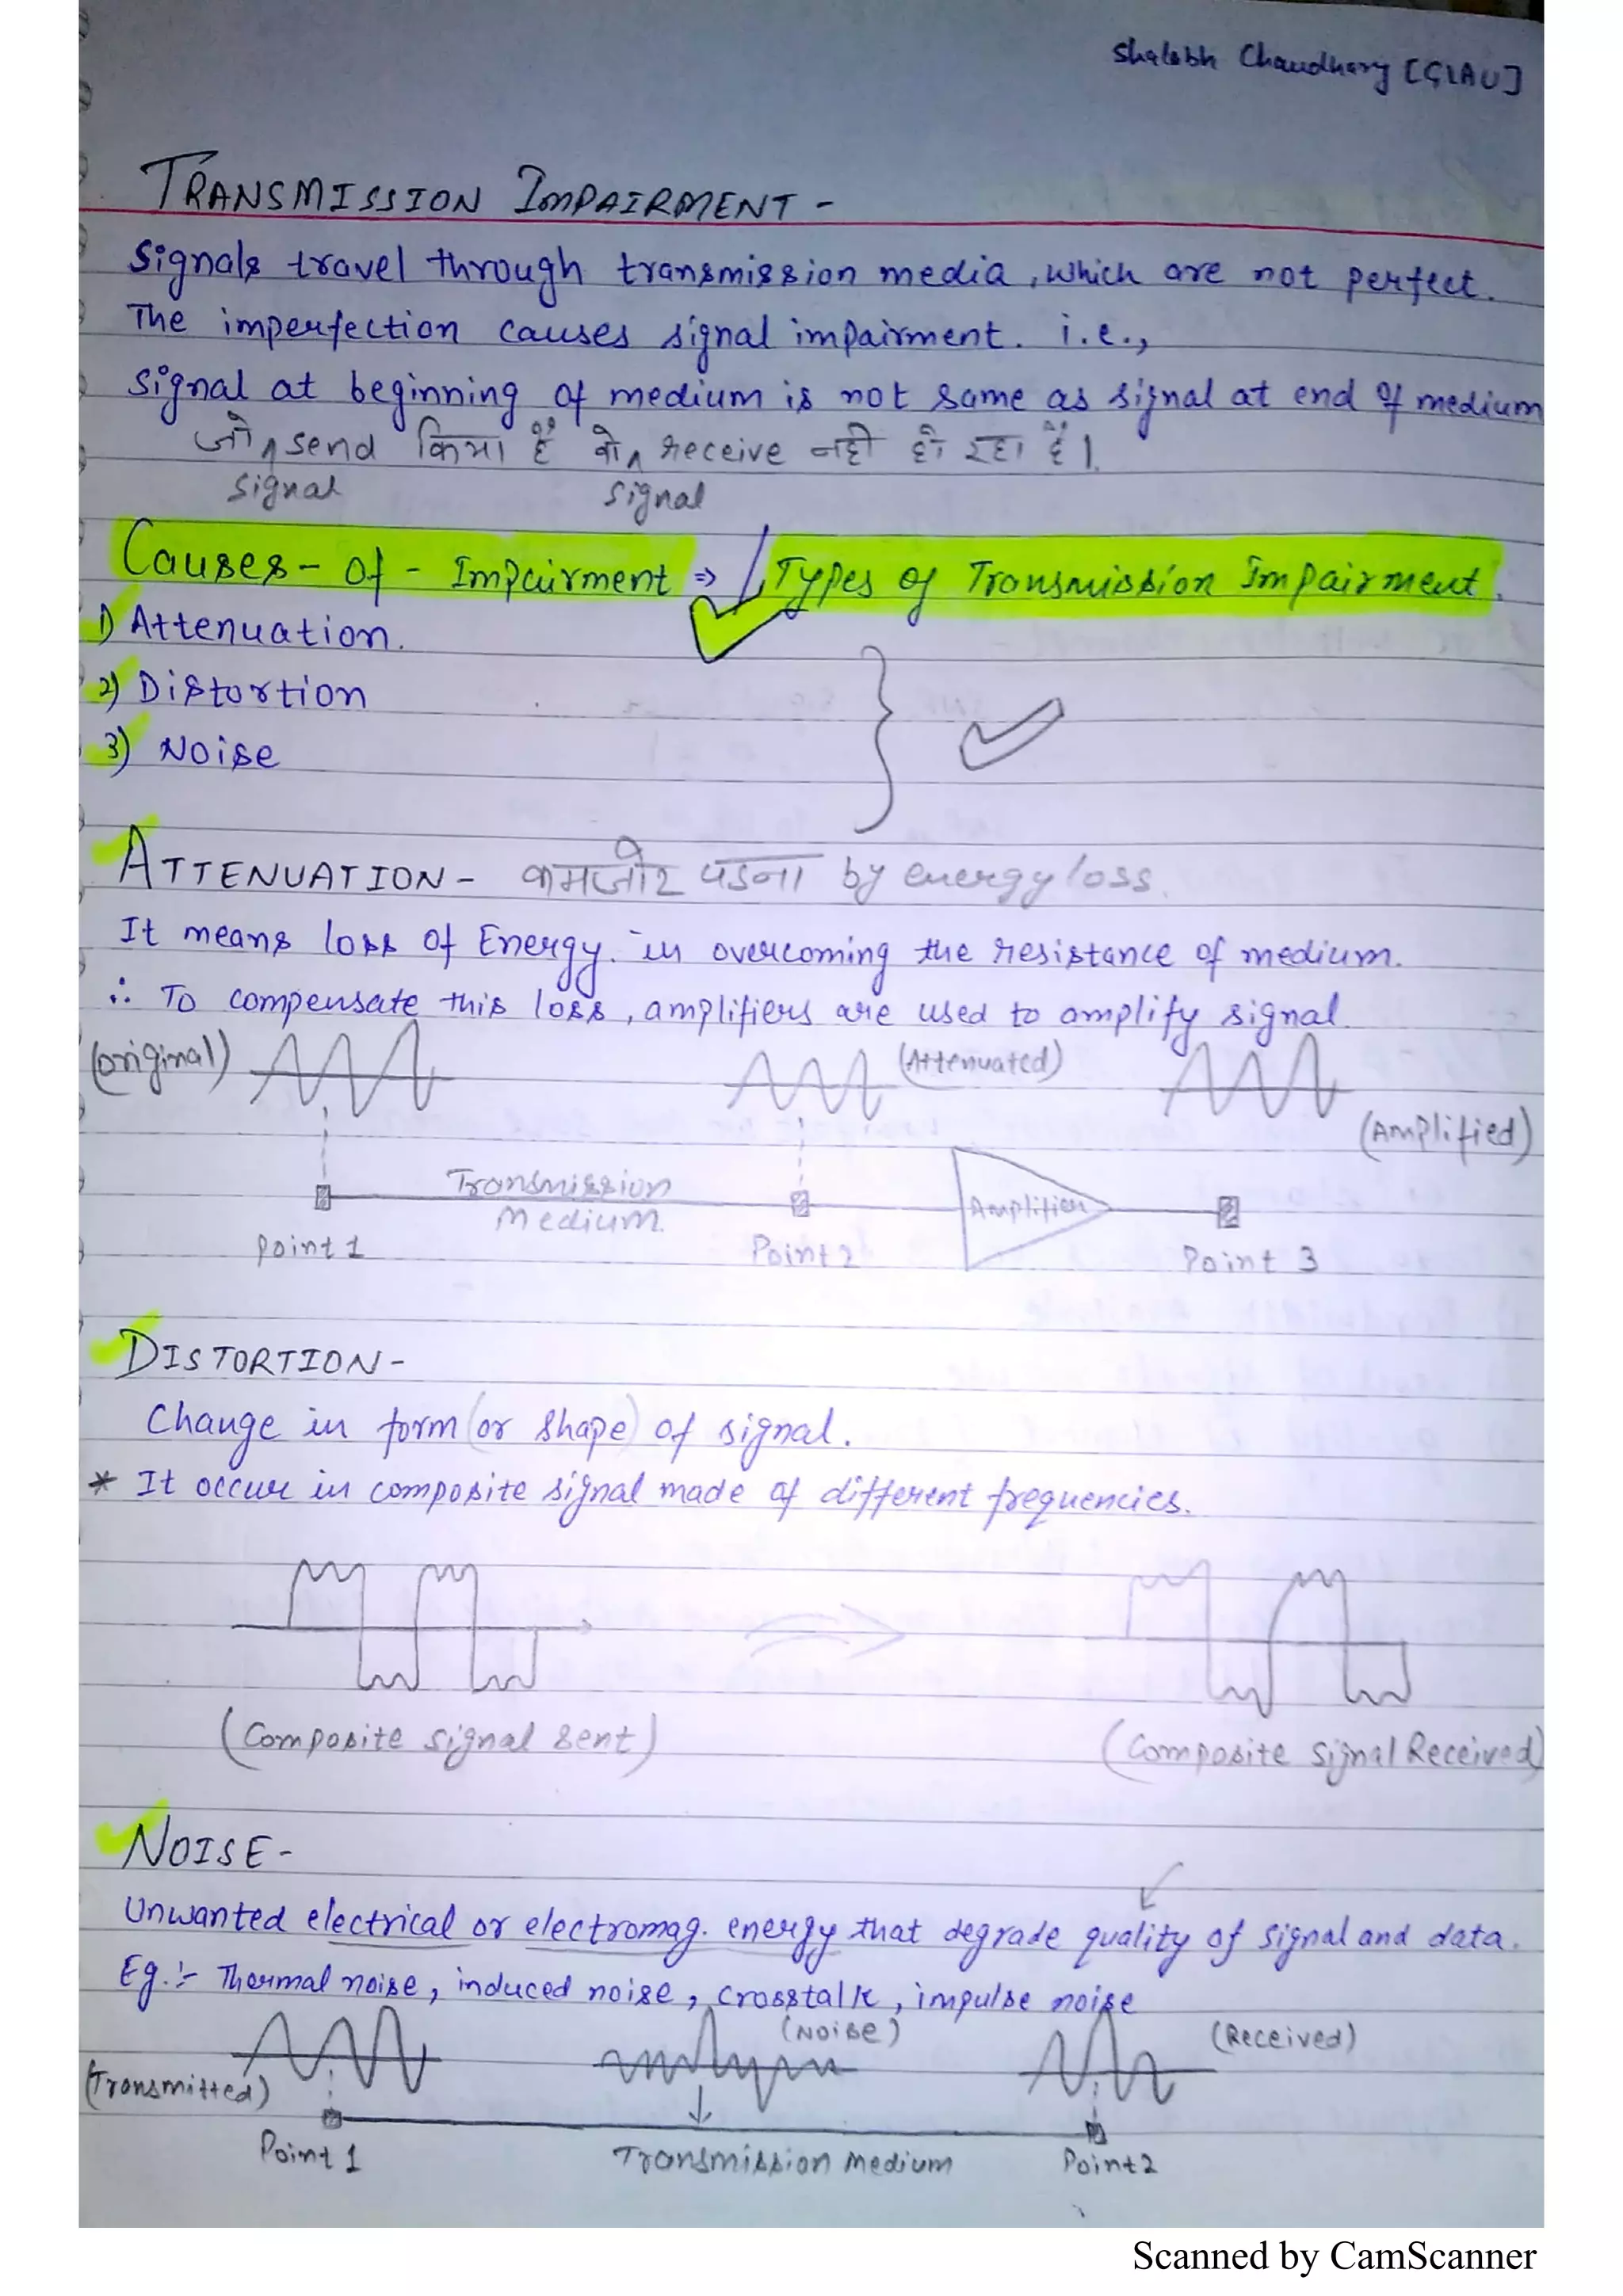 Shalabh Chaudhary [GLAU]
TRANSMISSION IMPAIRMENT -
Signals travel through transmission media, which are not perfect.
The imperfection causes signal impairment. i.e.,
Signal at beginning of medium is not same as signal at end of medium
जो ∧ send किया है वो ∧ receive नही हो रहा है।
signal signal
Causes - of - Impairment ⇒ Types of Transmission Impairment.
1) Attenuation.
2) Distortion
3) Noise
ATTENUATION - कमजोर पडना by energy loss.
It means loss of Energy. in overcoming the resistance of medium.
∴ To compensate this loss, amplifiers are used to amplify signal.
(original) (Attenuated)
(Amplified)
Transmission
Medium. Amplifier
Point 1 Point 2 Point 3
DISTORTION -
Change in form (or shape) of signal.
* It occur in composite signal made of different frequencies.
(Composite signal sent) (Composite Signal Received)
NOISE -
Unwanted electrical or electromag. energy that degrade quality of signal and data.
Eg.:- Thermal noise, induced noise, crosstalk, impulse noise
(Noise) (Received)
(Transmitted)
Point 1 Transmission Medium Point 2
Scanned by CamScanner